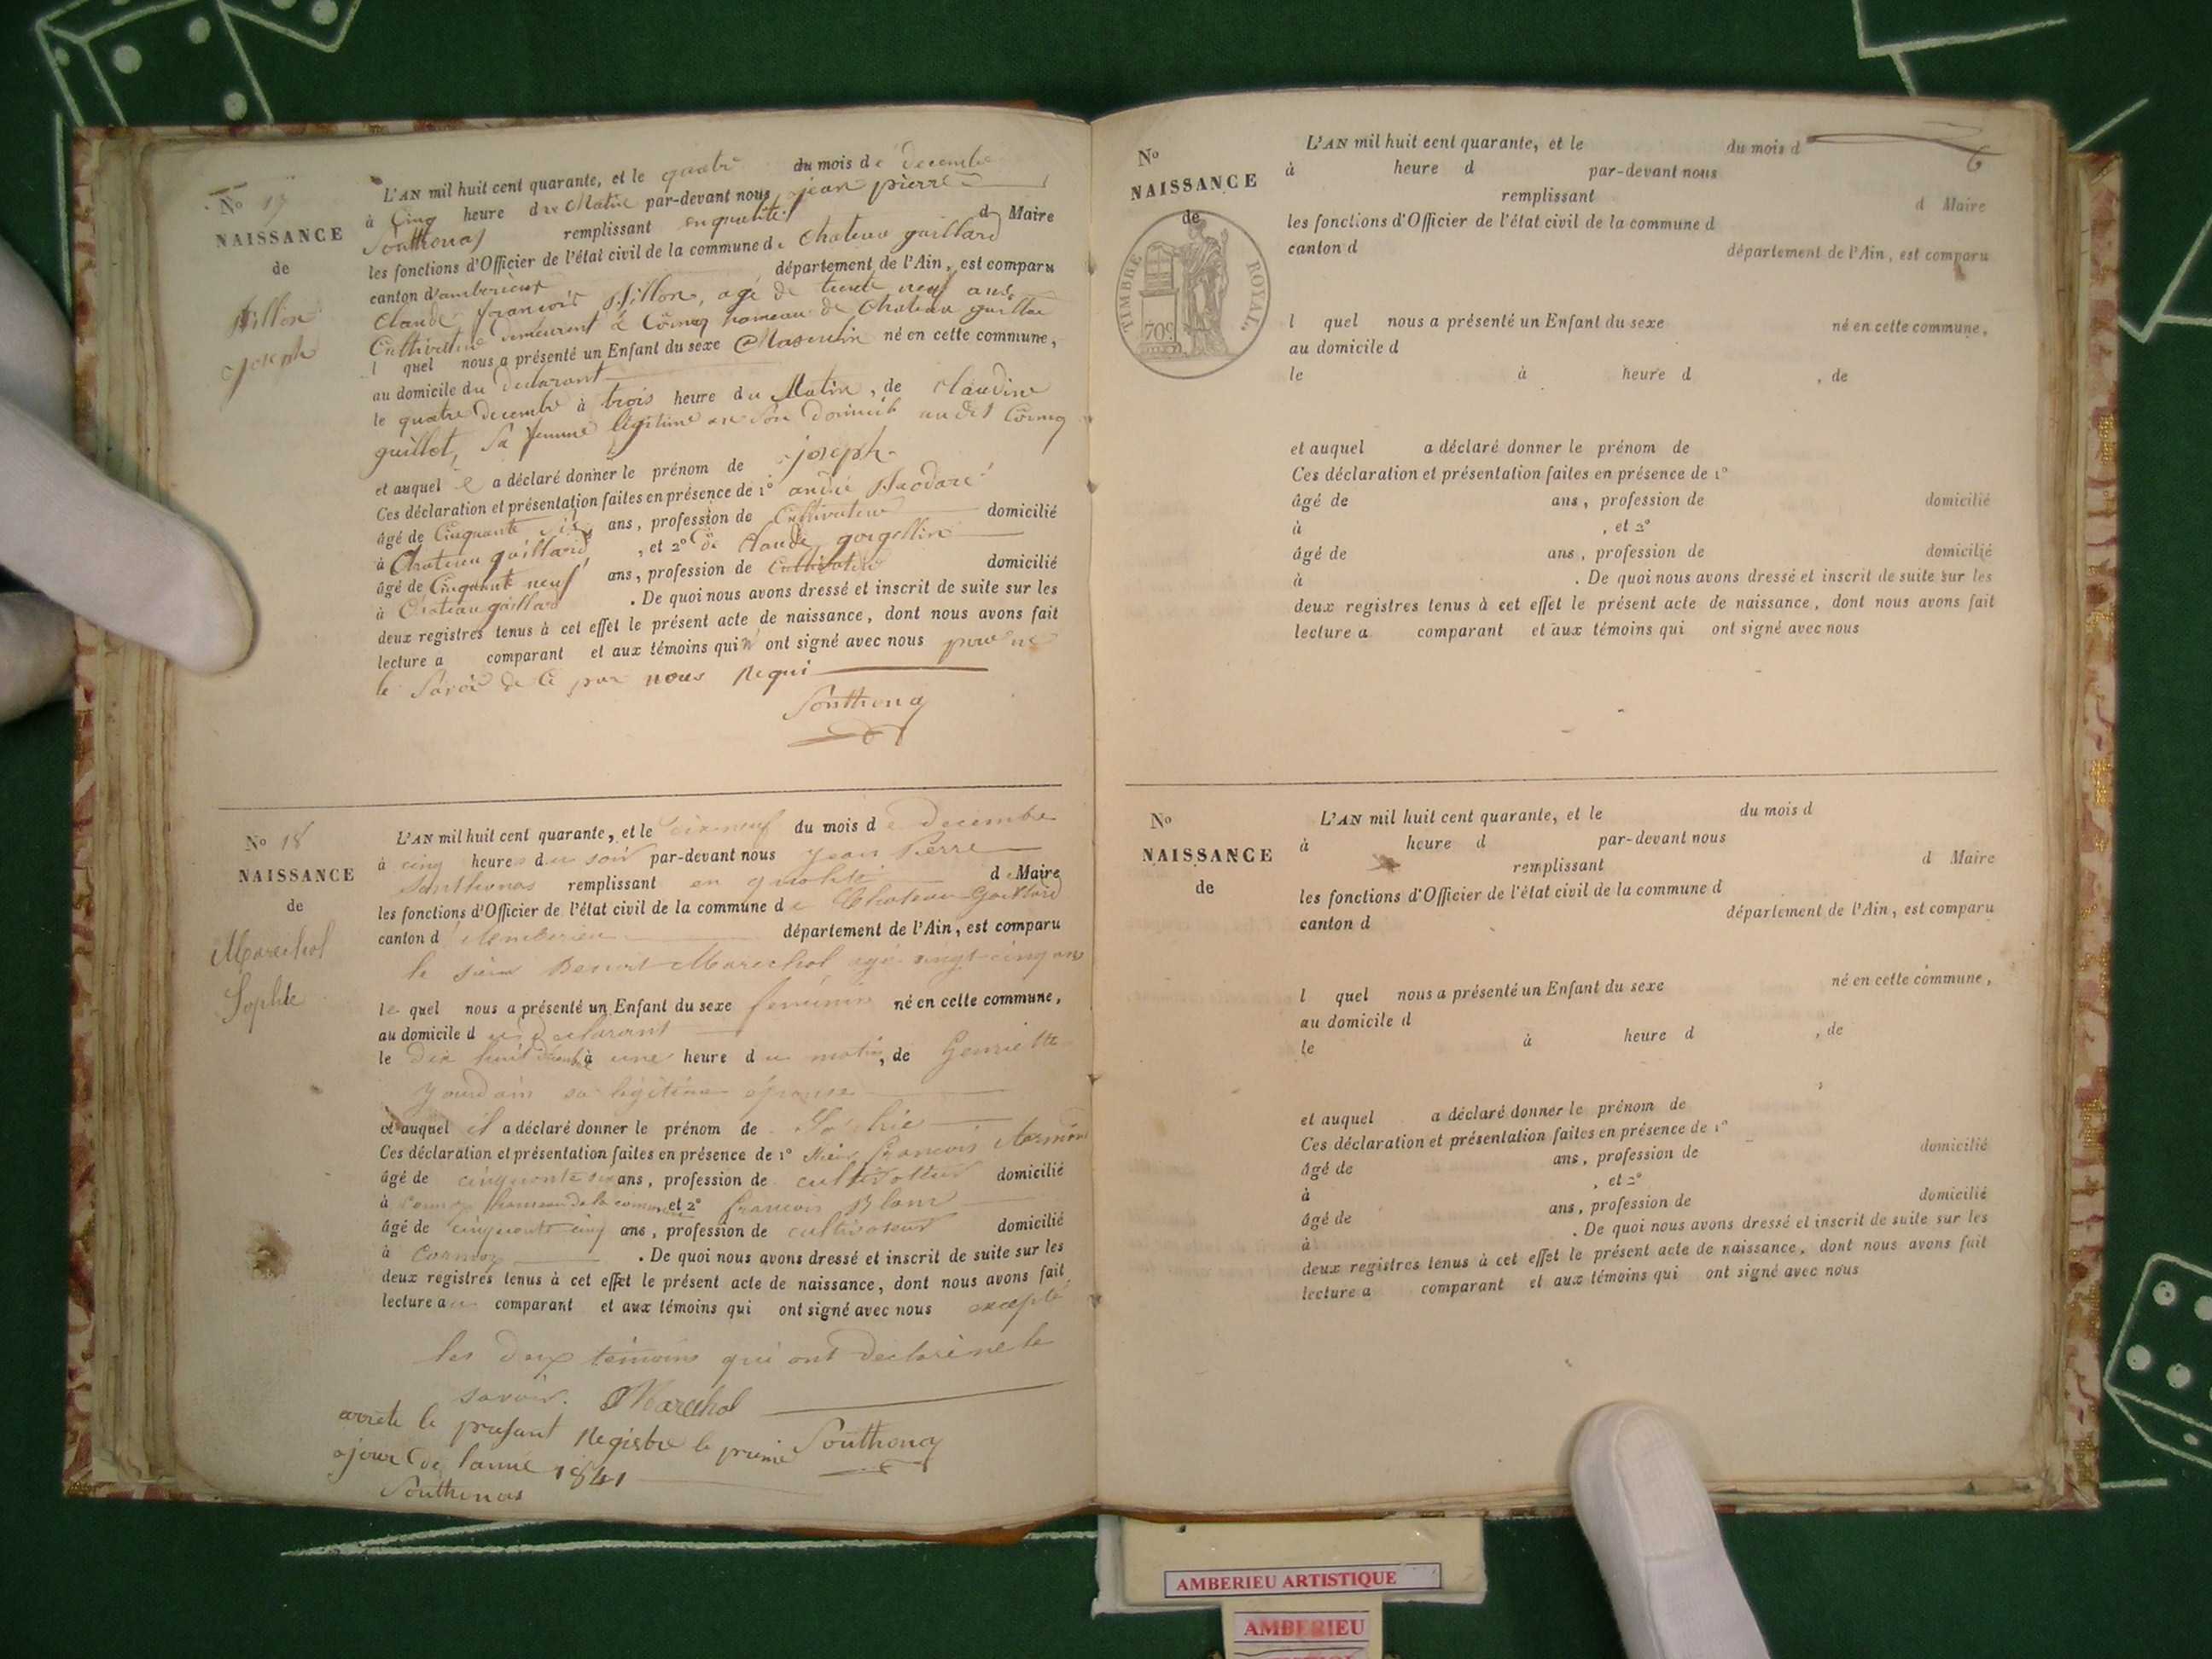 No 17
NAISSANCE
de
Joseph
L'AN mil huit cent quarante, et le quatre du mois de decembre
à Cinq heure du Matin par-devant nous jean pierre
Southonas remplissant en qualité d Maire
les fonctions d'Officier de l'état civil de la commune de Chateau gaillard
canton d'amberieux département de l'Ain, est comparu
Claude françois, agé de trente neuf ans
Cultivateur demeurent à Cormoz hameau de Chateau gaillar
l quel nous a présenté un Enfant du sexe Masculin né en cette commune,
au domicile du declarant
le quatre decembre à trois heure du Matin, de claudine
guillot, Sa femme légitime en Son domicile audit Cormoz
et auquel il a déclaré donner le prénom de joseph
Ces déclaration et présentation faites en présence de 1° andré
âgé de Cinquante ans, profession de Cultivateur domicilié
à Chateau gaillard, et 2° de Claude
âgé de Cinquante neuf ans, profession de Cultivateur domicilié
à Chateau gaillard. De quoi nous avons dressé et inscrit de suite sur les
deux registres tenus à cet effet le présent acte de naissance, dont nous avons fait
lecture a comparant et aux témoins qui n' ont signé avec nous pour ne
le Savoir de Ce par nous Requi
Southonas
No 18
NAISSANCE
de
Marechal
Sophie
L'AN mil huit cent quarante, et le dix neuf du mois de decembre
à cinq heures du soir par-devant nous Jean Pierre
Southonas remplissant en qualité de Maire
les fonctions d'Officier de l'état civil de la commune de Chateau-Gaillard
canton d'Amberieu département de l'Ain, est comparu
le sieur Benoit Marechal agé vingt cinq ans
lequel nous a présenté un Enfant du sexe feminin né en cette commune,
au domicile du declarant
le dix huit à une heure du matin, de
Jourdain sa légitime épouse
et auquel il a déclaré donner le prénom de Sophie
Ces déclaration et présentation faites en présence de 1° Sieur françois
âgé de cinquante ans, profession de cultivateur domicilié
à Cormoz hameau de la commune et 2° françois Blanc
âgé de cinquante cinq ans, profession de cultivateur domicilié
à Cormoz. De quoi nous avons dressé et inscrit de suite sur les
deux registres tenus à cet effet le présent acte de naissance, dont nous avons fait
lecture au comparant et aux témoins qui ont signé avec nous excepté
les deux témoins qui ont declaré ne le
savoir. Marechal
Southonas
arrete le presant Registre le premie
ajour de lanné 1841
Southonas
No
NAISSANCE
de
TIMBRE ROYAL
70c
L'AN mil huit cent quarante, et le du mois d
à heure d par-devant nous
remplissant d Maire
les fonctions d'Officier de l'état civil de la commune d
canton d département de l'Ain, est comparu
l quel nous a présenté un Enfant du sexe né en cette commune,
au domicile d
le à heure d , de
et auquel a déclaré donner le prénom de
Ces déclaration et présentation faites en présence de 1°
âgé de ans, profession de domicilié
à , et 2°
âgé de ans, profession de domicilié
à . De quoi nous avons dressé et inscrit de suite sur les
deux registres tenus à cet effet le présent acte de naissance, dont nous avons fait
lecture a comparant et aux témoins qui ont signé avec nous
No
NAISSANCE
de
L'AN mil huit cent quarante, et le du mois d
à heure d par-devant nous
remplissant d Maire
les fonctions d'Officier de l'état civil de la commune d
canton d département de l'Ain, est comparu
l quel nous a présenté un Enfant du sexe né en cette commune,
au domicile d
le à heure d , de
et auquel a déclaré donner le prénom de
Ces déclaration et présentation faites en présence de 1°
âgé de ans, profession de domicilié
à , et 2°
âgé de ans, profession de domicilié
à . De quoi nous avons dressé et inscrit de suite sur les
deux registres tenus à cet effet le présent acte de naissance, dont nous avons fait
lecture a comparant et aux témoins qui ont signé avec nous
AMBERIEU ARTISTIQUE
AMBERIEU